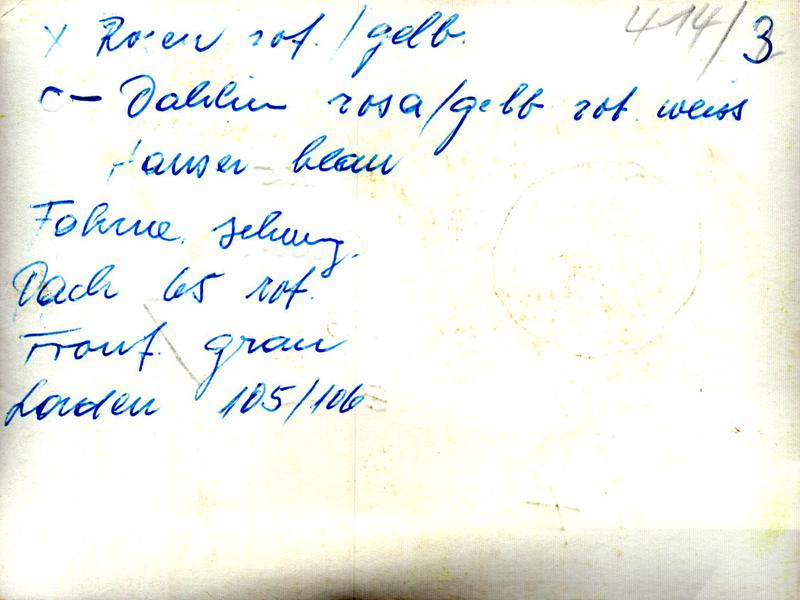 414/3
x Rosen rot. / gelb.
c – Dahlien rosa/gelb rot. weiss
blau
Fahne.
Dach 65 rot.
Front. grau
Laden 105/106